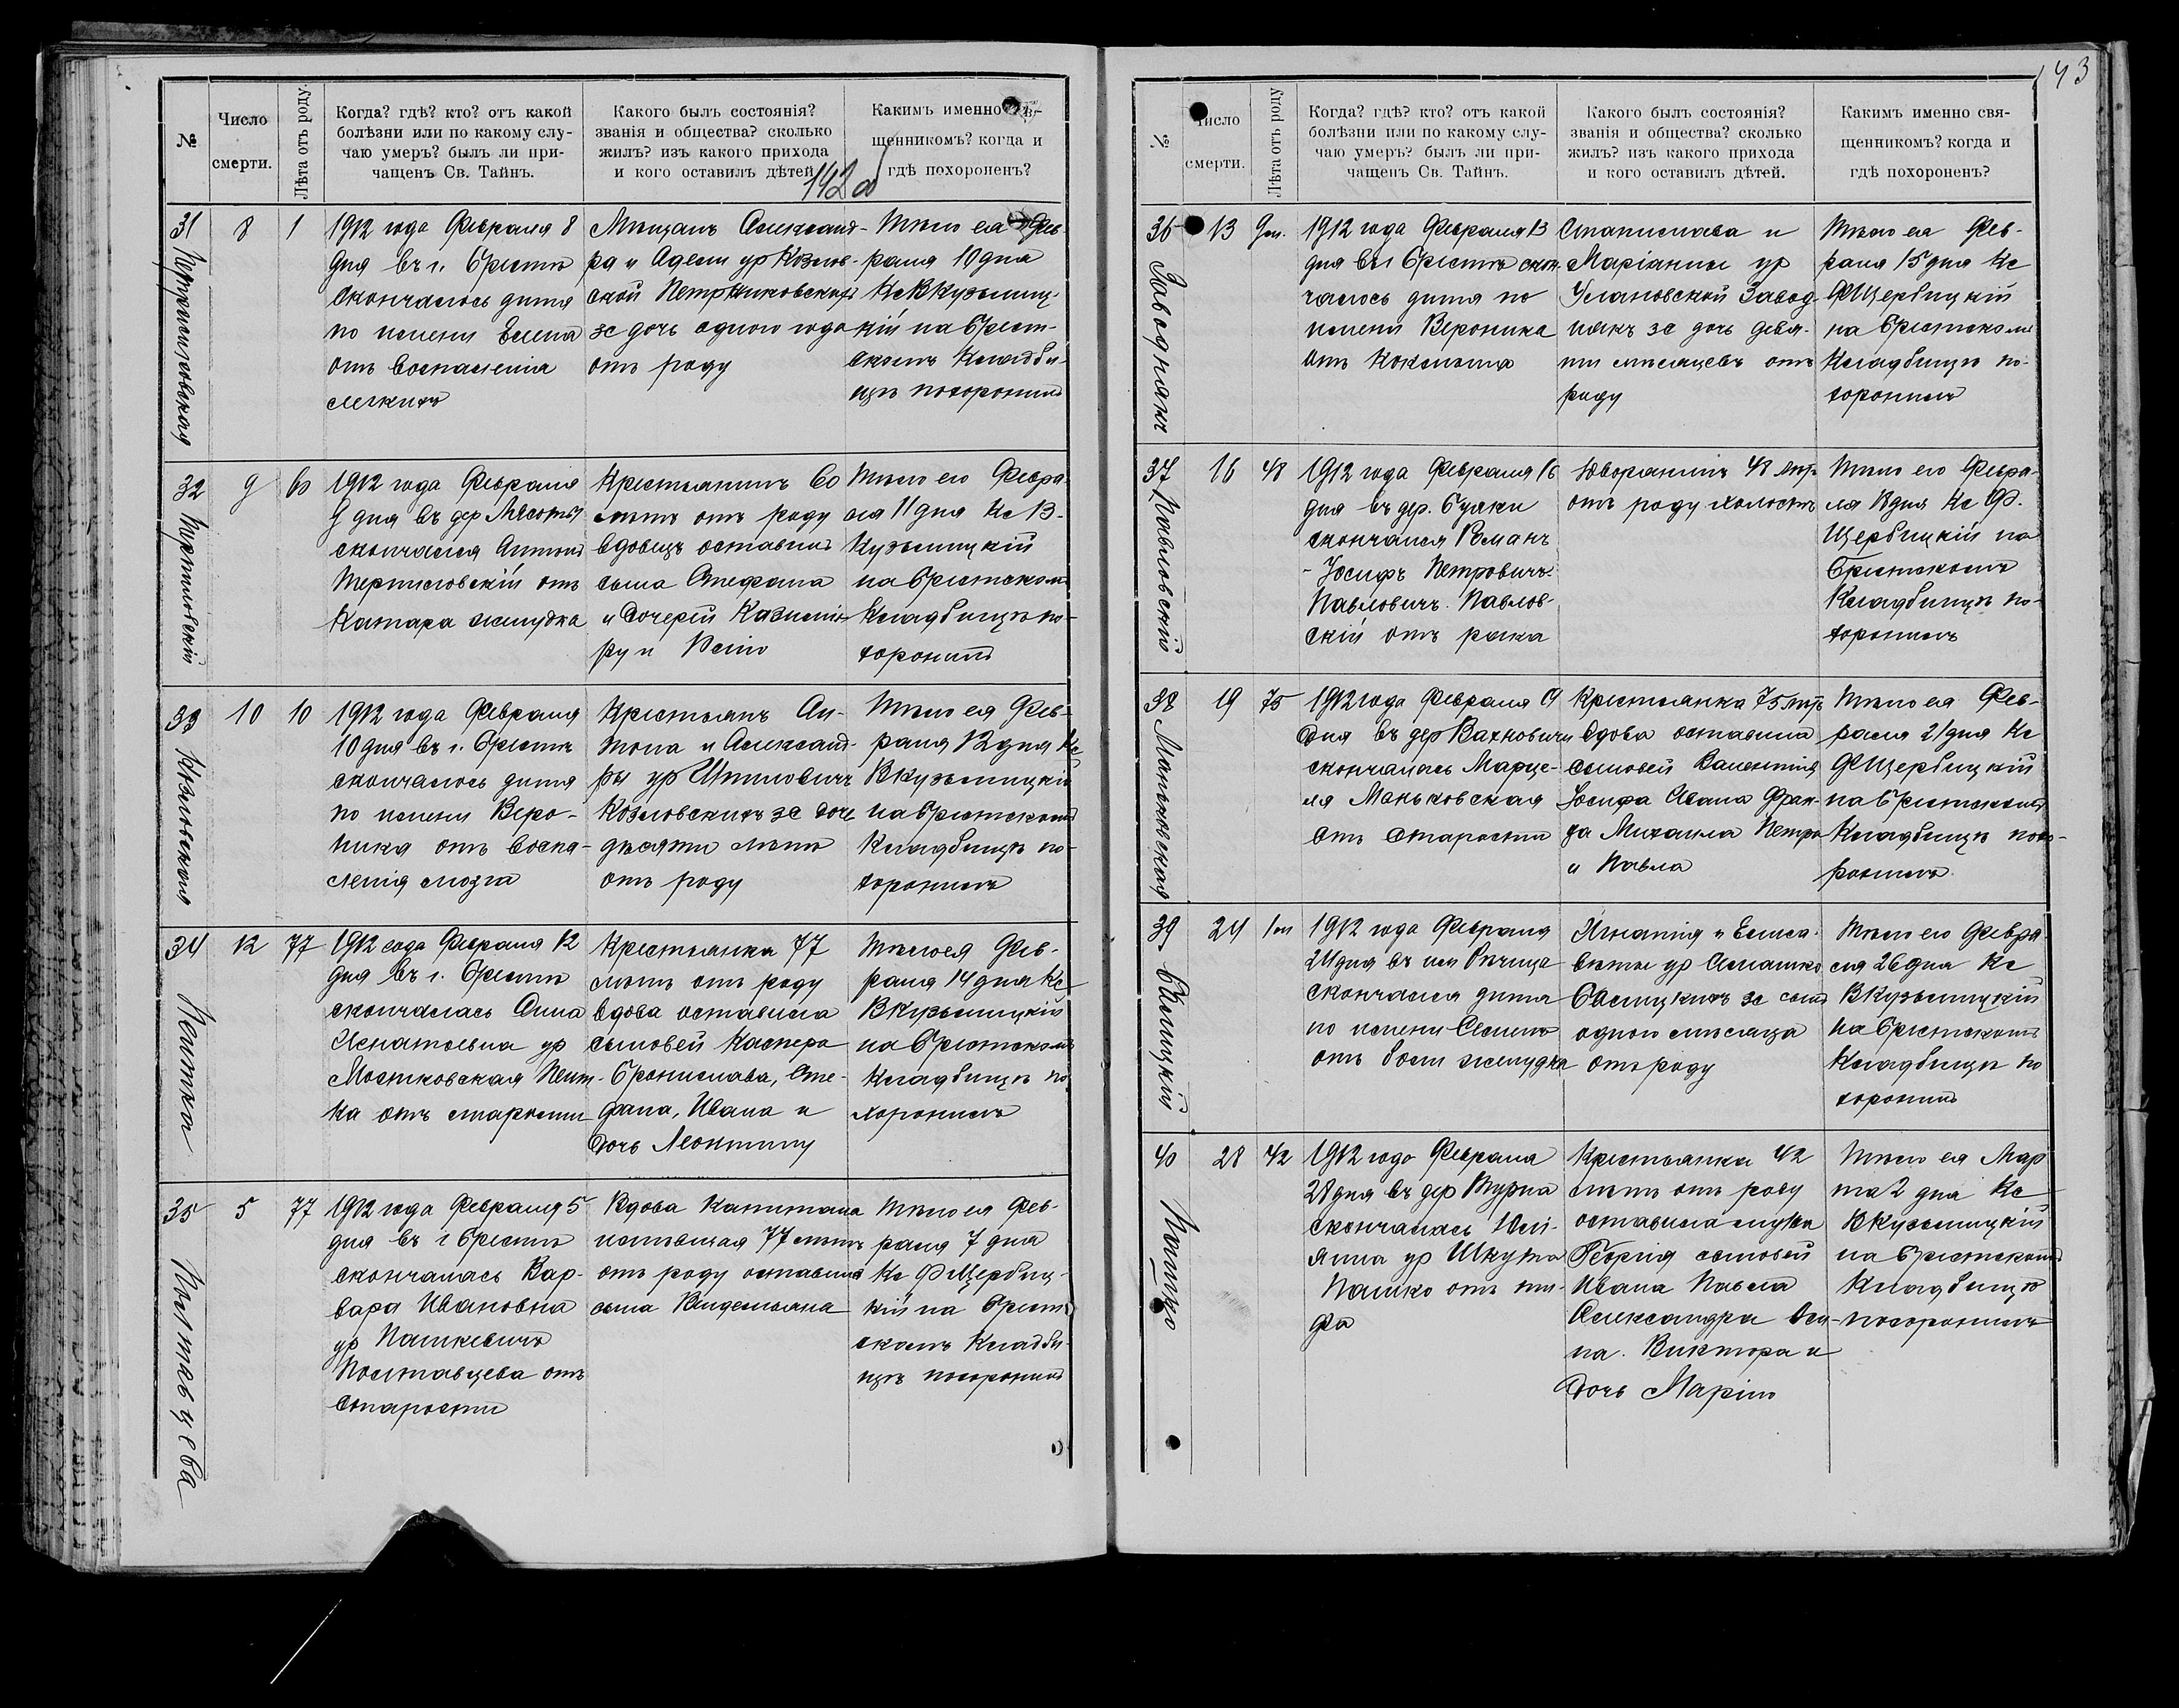 143
142 об
№
Число
смерти.
Лѣта отъ роду.
Когда? гдѣ? кто? отъ какой
болѣзни или по какому слу-
чаю умеръ? былъ ли при-
чащенъ Св. Тайнъ.
Какого былъ состоянія?
званія и общества? сколько
жилъ? изъ какого прихода
и кого оставилъ дѣтей
Какимъ именно свя-
щенникомъ? когда и
гдѣ похороненъ?
31
8
1
1912 года Февраля 8
дня въ г. Брестѣ
скончалось дитя
по имени Елена
отъ воспаленія
легкихъ
Мѣщанъ Александ-
ра и Адели ур Козлов-
ской
за дочь одного года
отъ роду
Тѣло ея Фев-
раля 10 дня
Кс В Кузьмиц-
кій на Брест-
скомъ Кладби-
щѣ похоронилъ
32 Терпиловскій
9
60
1912 года Февраля
9 дня въ дер
скончался Антонъ
Терпиловскій отъ
Катара желудка
Крестьянинъ 60
лѣтъ отъ роду
вдовецъ оставилъ
сына Стефана
и дочерей Казимі-
ру и
Тѣло его Февра-
ля 11 дня Кс В.
Кузьмицкій
на Брестскомъ
Кладбищѣ по-
хоронилъ
33 Козловская
10
10
1912 года Февраля
10 дня въ г. Брестѣ
скончалось дитя
по имени Веро-
ника отъ воспа-
ленія мозга
Крестьянъ Ан-
тона и Александ-
ры ур
Козловскихъ за дочь
десяти лѣтъ
отъ роду
Тѣло ея Фев-
раля 12 дня Кс
В Кузьмицкій
на Брестскомъ
Кладбищѣ по-
хоронилъ
34
12
77
1912 года Февраля 12
дня въ г. Брестѣ
скончалась Анна
Игнатьевна ур
Мостковская
отъ старости
Крестьянка 77
лѣтъ отъ роду
вдова оставила
сыновей Каспера
Бронислава, Сте-
фана, Ивана и
дочь Леонтину
Тѣло ея Фев-
раля 14 дня Кс
В Кузьмицкій
на Брестскомъ
Кладбищѣ по
хоронилъ
35 Полтавцева
5
77
1912 года Февраля 5
дня въ г Брестѣ
скончалась Вар-
вара Ивановна
ур Пашкевичъ
Полтавцева отъ
старости
Вдова Капитана
77 лѣтъ
отъ роду оставила
сына
Тѣло ея Фев-
раля 7 дня
Кс Ф Щербиц-
кій на Брест-
скомъ Кладби-
щѣ похоронилъ
№
Число
смерти.
Лѣта отъ роду
Когда? гдѣ? кто? отъ какой
болѣзни или по какому слу-
чаю умеръ? былъ ли при-
чащенъ Св. Тайнъ.
Какого былъ состоянія?
званія и общества? сколько
жилъ? изъ какого прихода
и кого оставилъ дѣтей.
Какимъ именно свя-
щенникомъ? когда и
гдѣ похороненъ?
36 Заводнякъ
13
9 м.
1912 года Февраля 13
дня въ г Брестѣ скон-
чалось дитя по
имени Вероника
отъ коклюша
Станислава и
Маріанны ур
Улановской Завод-
някъ за дочь девя-
ти мѣсяцевъ отъ
роду
Тѣло ея Фев-
раля 15 дня Кс
Ф Щербицкій
на Брестскомъ
Кладбищѣ по-
хоронилъ
37 Павловскій
16
48
1912 года Февраля 16
дня въ дер.
скончался Романъ
-Іосифъ Петровичъ
Павловичъ. Павлов-
скій отъ рака
Дворянинъ 48 лѣтъ
отъ роду холостъ
Тѣло его Февра-
ля 18 дня Кс Ф.
Щербицкій на
Брестскомъ
Кладбищѣ по-
хоронилъ
38 Маньковская
19
75
1912 года Февраля 19
дня въ дер Вахновичи
скончалась Марце-
ля Маньковская
отъ старости
Крестьянка 75 лѣтъ
вдова оставила
сыновей Валентія
Іосифа Ивана Фран-
ца Михаила Петра
и Павла
Тѣло ея Фев-
раля 21 дня Кс
Ф Щербицкій
на Брестскомъ
Кладбищѣ похо-
ронилъ
39
24
1 м
1912 года Февраля
24 дня въ им Рѣчица
скончался дитя
по имени
отъ боли желудка
Игнатія и Елиса-
веты ур
за сына
одного мѣсяца
отъ роду
Тѣло его Февра-
ля 26 дня Кс
В Кузьмицкій
на Брестскомъ
Кладбищѣ по
хоронилъ
40 Пашко
28
42
1912 года Февраля
28 дня въ дер Турна
скончалась Юлі-
янна ур
Пашко отъ ти-
фа
Крестьянка 42
лѣтъ отъ роду
оставила мужа
сыновей
Ивана Павла
Александра Оси-
па. Виктора и
дочь Марію
Тѣло ея Мар
та 2 дня Кс
В Кузьмицкій
на Брестскомъ
Кладбищѣ
похоронилъ